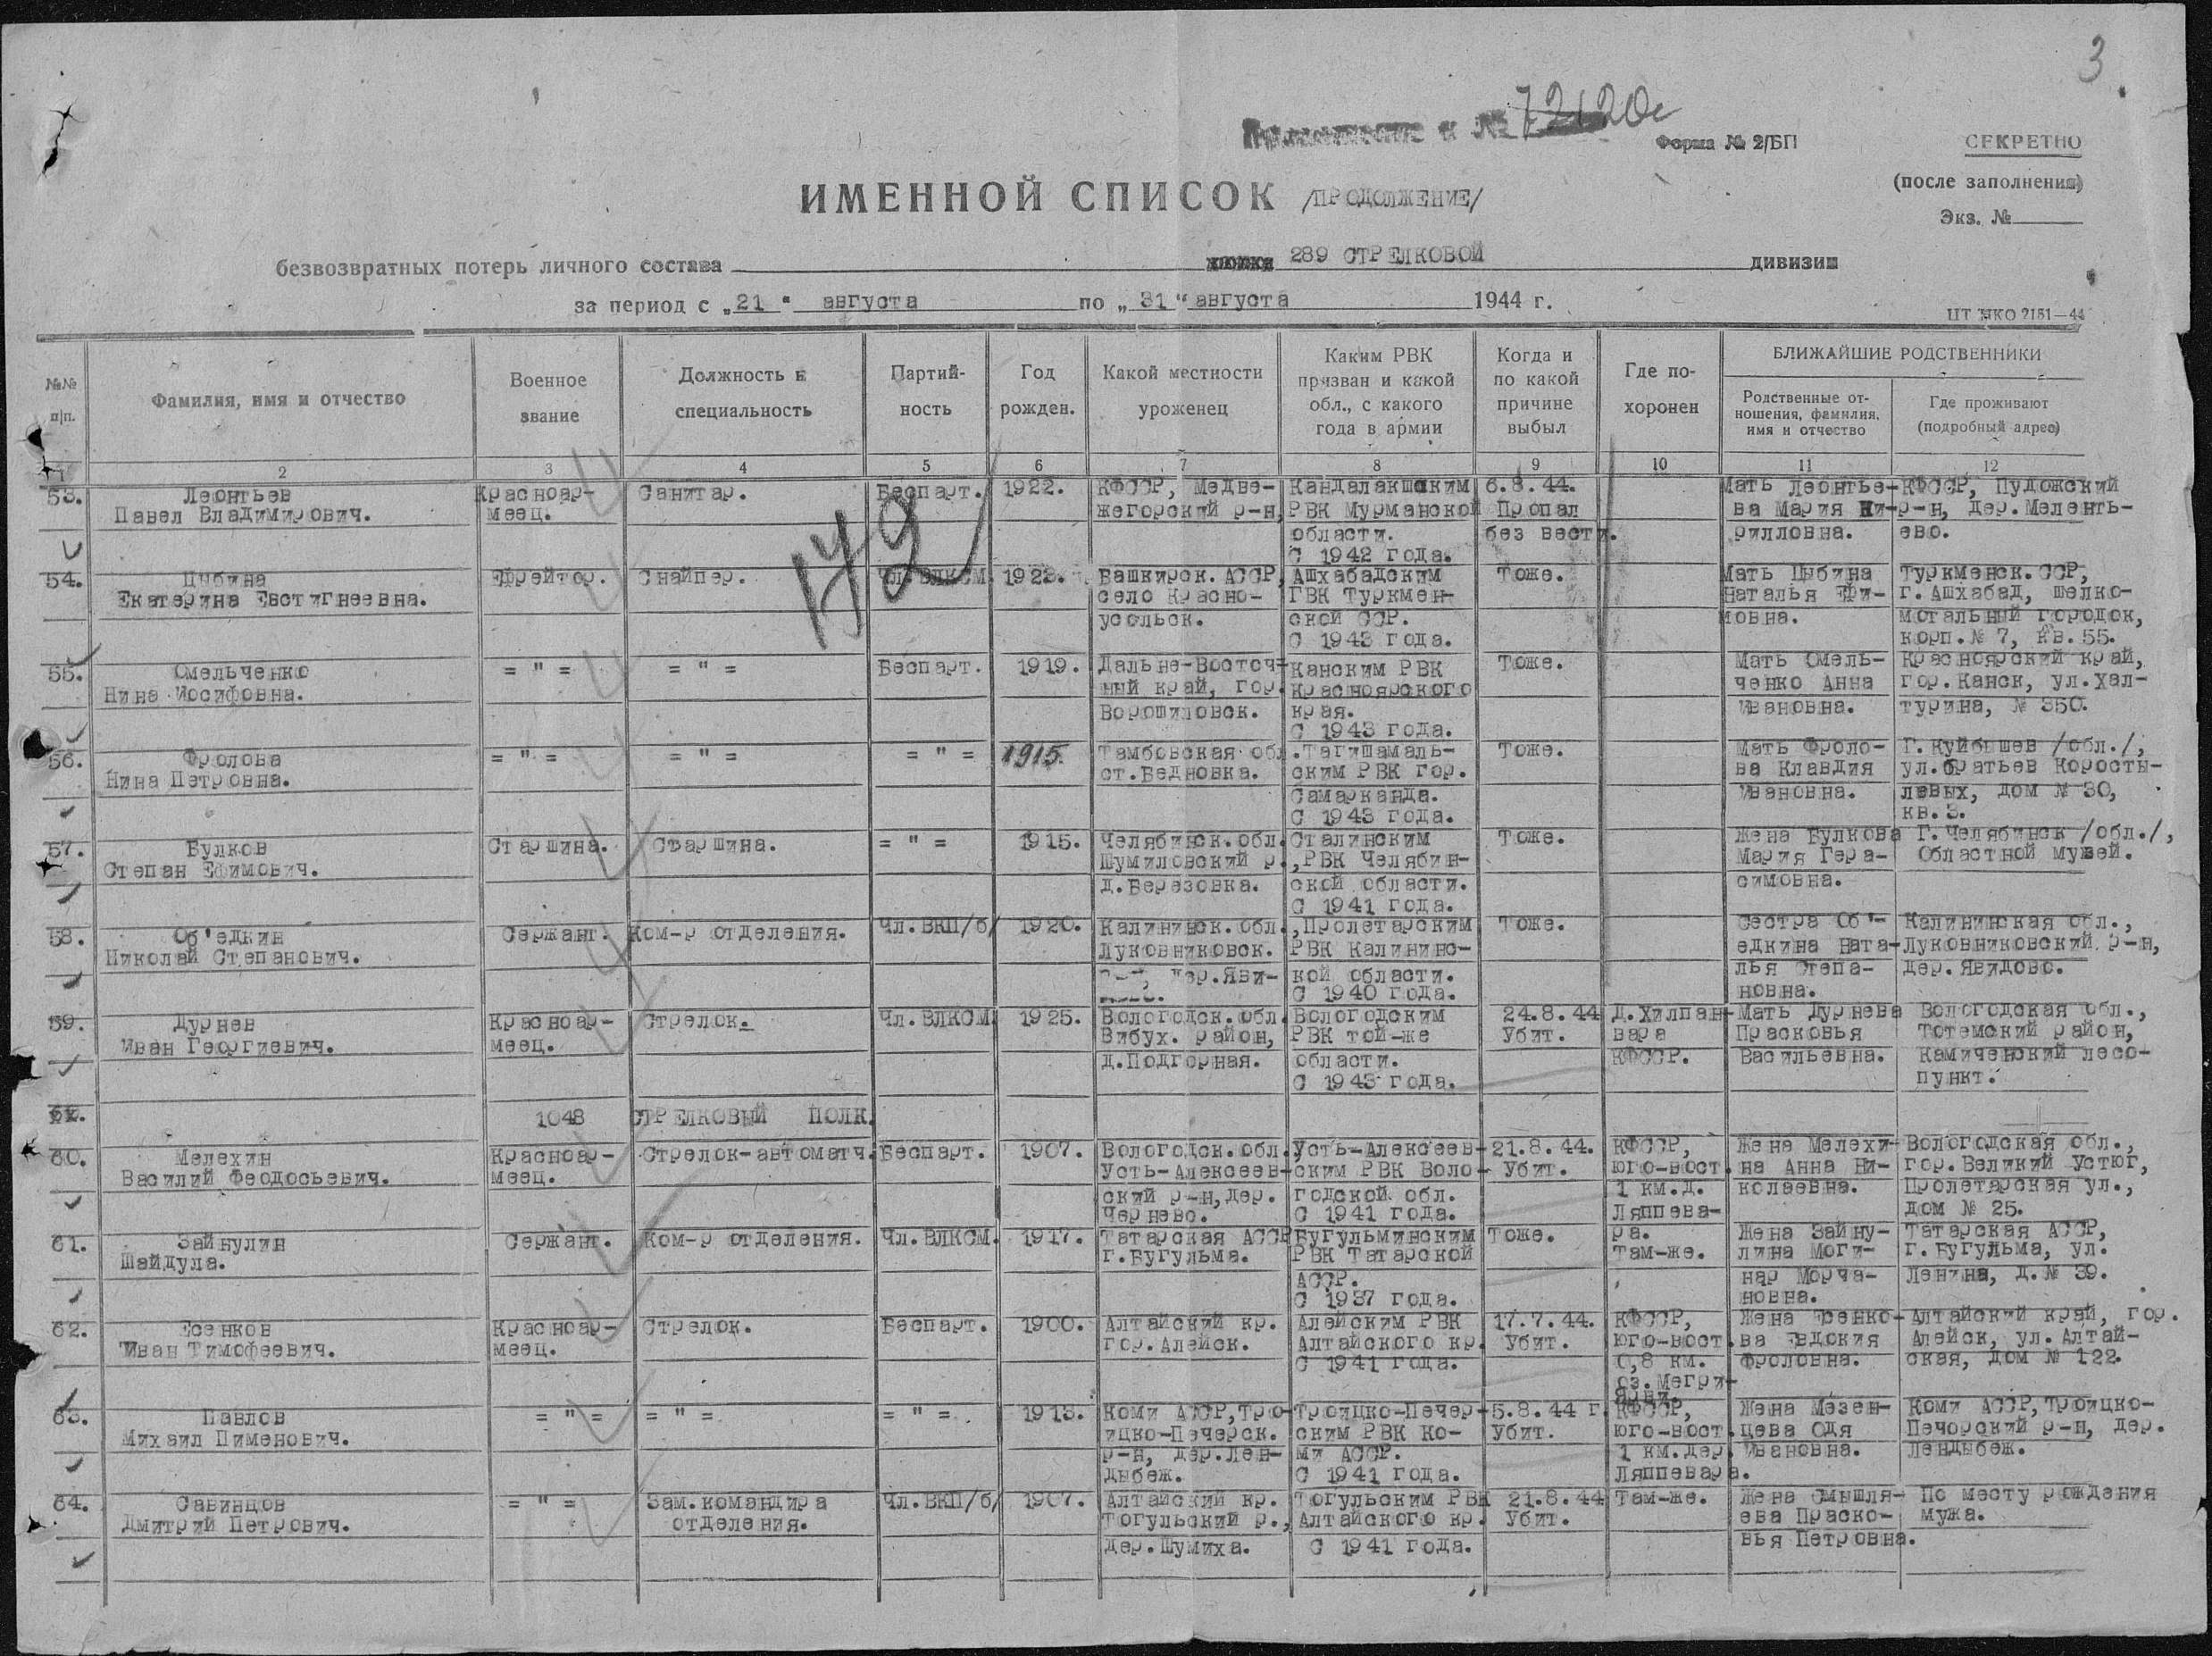 3
№ 72120с
Форма № 2/БП
СЕКРЕТНО
(после заполнения)
Экз. №
ИМЕННОЙ СПИСОК /ПРОДОЛЖЕНИЕ/
безвозвратных потерь личного состава 289 СТРЕЛКОВОЙ дивизии
за период с „21“ августа по „31“ августа 1944 г.
ЦТ НКО 2151—44
№№ п/п.
Фамилия, имя и отчество
Военное звание
Должность и специальность
Партий-
ность
Год рожден.
Какой местности уроженец
Каким РВК
призван и какой
обл., с какого
года в армии
Когда и
по какой
причине
выбыл
Где по-
хоронен
БЛИЖАЙШИЕ РОДСТВЕННИКИ
Родственные от-
ношения, фамилия,
имя и отчество
Где проживают
(подробный адрес)
1 2 3 4 5 6 7 8 9 10 11 12
179
53. Леонтьев Красноар- Санитар. Беспарт. 1922. КФССР, Медве- Кандалакшским 6.8.44. Мать Леонтье- КФССР, Пудожский
Павел Владимирович. меец. жегорский р-н, РВК Мурманской Пропал ва Мария Ки- р-н, дер.Меленть-
области. без вести. рилловна. ево.
С 1942 года.
54. Цыбина Ефрейтор. Снайпер. Чл.ВЛКСМ. 1923. Башкирск.АССР, Ашхабадским Тоже. Мать Цыбина Туркменск.ССР,
Екатерина Евстигнеевна. село Красно- ГВК Туркмен- Наталья Ефи- г.Ашхабад, шелко-
усольск. ской ССР. мовна. мотальный городок,
С 1943 года. корп.№ 7, кв.55.
55. Омельченко = " = = " = Беспарт. 1919. Дальне-Восточ- Канским РВК Тоже. Мать Омель- Красноярский край,
Нина Иосифовна. ный край, гор. Красноярского ченко Анна гор.Канск, ул.Хал-
Ворошиловск. края. Ивановна. турина, № 350.
С 1943 года.
56. Фролова = " = = " = = " = 1915. Тамбовская обл. Тагишамаль- Тоже. Мать Фроло- Г.Куйбышев /обл./,
Нина Петровна. ст.Бедновка. ским РВК гор. ва Клавдия ул.братьев Коросты-
Самарканда. Ивановна. левых, дом № 30,
С 1943 года. кв.3.
57. Булков Старшина. Старшина. = " = 1915. Челябинск.обл. Сталинским Тоже. Жена Булкова Г.Челябинск /обл./,
Степан Ефимович. Шумиловский р., РВК Челябин- Мария Гера- Областной музей.
д.Березовка. ской области. симовна.
С 1941 года.
58. Об'едкин Сержант. Ком-р отделения. Чл.ВКП/б/ 1920. Калининск.обл., Пролетарским Тоже. Сестра Об'- Калининская обл.,
Николай Степанович. Луковниковск. РВК Калининс- едкина Ната- Луковниковский р-н,
дер.Яви- кой области. лья Степа- дер.Явидово.
С 1940 года. новна.
59. Дурнев Красноар- Стрелок. Чл.ВЛКСМ. 1925. Вологодск.обл. Вологодским 24.8.44 Д.Хилпан- Мать Дурнева Вологодская обл.,
Иван Георгиевич. меец. Вибух. район, РВК той-же Убит. вара Прасковья Тотемский район,
д.Подгорная. области. КФССР. Васильевна. Камиченский лесо-
С 1943 года. пункт.
1048 СТРЕЛКОВЫЙ ПОЛК.
60. Мелехин Красноар- Стрелок-автоматч. Беспарт. 1907. Вологодск.обл. Усть-Алексеев- 21.8.44. КФССР, Жена Мелехи- Вологодская обл.,
Василий Феодосьевич. меец. Усть-Алексеев- ским РВК Воло- Убит. юго-вост. на Анна Ни- гор.Великий Устюг,
ский р-н,дер. годской обл. 1 км.д. колаевна. Пролетарская ул.,
Чернево. С 1941 года. Ляппева- дом № 25.
61. Зайнулин Сержант. Ком-р отделения. Чл.ВЛКСМ. 1917. Татарская АССР Бугульминским Тоже. ра. Жена Зайну- Татарская АССР,
Шайдула. г.Бугульма. РВК Татарской Там-же. лина Моги- г.Бугульма, ул.
АССР. нар Морча- Ленина, д.№ 39.
С 1937 года. новна.
62. Есенков Красноар- Стрелок. Беспарт. 1900. Алтайский кр. Алейским РВК 17.7.44. КФССР, Жена Есенко- Алтайский край, гор.
Иван Тимофеевич. меец. гор.Алейск. Алтайского кр. Убит. юго-вост. ва Евдокия Алейск, ул.Алтай-
С 1941 года. 0,8 км. Фроловна. ская, дом № 122.
оз.Мегри-
ярви.
63. Павлов = " = = " = = " = 1913. Коми АССР,Тро- Троицко-Печер- 5.8.44 г. КФССР, Жена Мезен- Коми АССР,Троицко-
Михаил Пименович. ицко-Печерск. ским РВК Ко- Убит. юго-вост. цева Одя Печорский р-н, дер.
р-н, дер.Лен- ми АССР. 1 км.дер. Ивановна. Лендыбеж.
дыбеж. С 1941 года. Ляппевара.
64. Савинцов = " = Зам.командира Чл.ВКП/б/ 1907. Алтайский кр. Тогульским РВК 21.8.44 Там-же. Жена Смышля- По месту рождения
Дмитрий Петрович. отделения. Тогульский р., Алтайского кр. Убит. ева Праско- мужа.
дер.Шумиха. С 1941 года. вья Петровна.